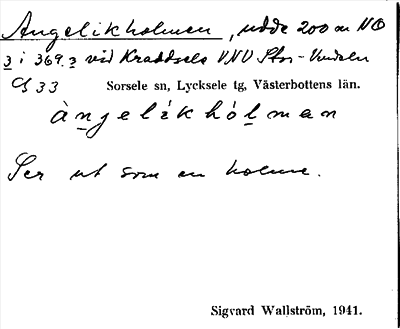 Angelikholmen, udde 200 m NO
3 i 369.3 vid Kraddsele VNV Stor-Vindeln
GS 33 Sorsele sn, Lycksele tg, Västerbottens län.
àn̲gelìkhól̲man
Ser ut som en holme.
Sigvard Wallström, 1941.